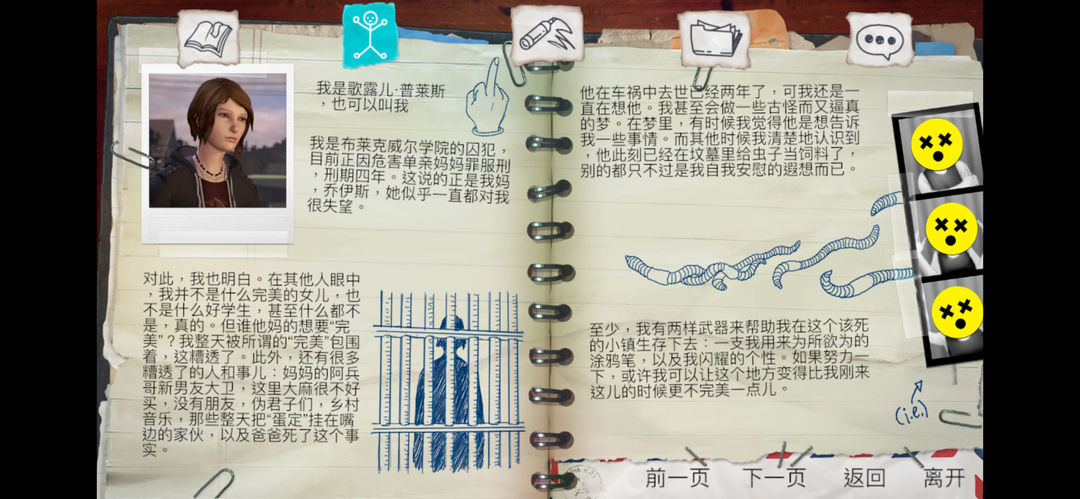 我是歌露儿·普莱斯
，也可以叫我
我是布莱克威尔学院的囚犯，
目前正因危害单亲妈妈罪服刑
，刑期四年。这说的正是我妈
，乔伊斯，她似乎一直都对我
很失望。
对此，我也明白。在其他人眼中
，我并不是什么完美的女儿，也
不是什么好学生，甚至什么都不
是，真的。但谁他妈的想要“完
美”？我整天被所谓的“完美”包围
着，这糟透了。此外，还有很多
糟透了的人和事儿：妈妈的阿兵
哥新男友大卫，这里大麻很不好
买，没有朋友，伪君子们，乡村
音乐，那些整天把“蛋定”挂在嘴
边的家伙，以及爸爸死了这个事
实。
他在车祸中去世已经两年了，可我还是一
直在想他。我甚至会做一些古怪而又逼真
的梦。在梦里，有时候我觉得他是想告诉
我一些事情。而其他时候我清楚地认识到
，他此刻已经在坟墓里给虫子当饲料了，
别的都只不过是我自我安慰的遐想而已。
至少，我有两样武器来帮助我在这个该死
的小镇生存下去：一支我用来为所欲为的
涂鸦笔，以及我闪耀的个性。如果努力一
下，或许我可以让这个地方变得比我刚来
这儿的时候更不完美一点儿。
(i.e.)
前一页 下一页 返回 离开